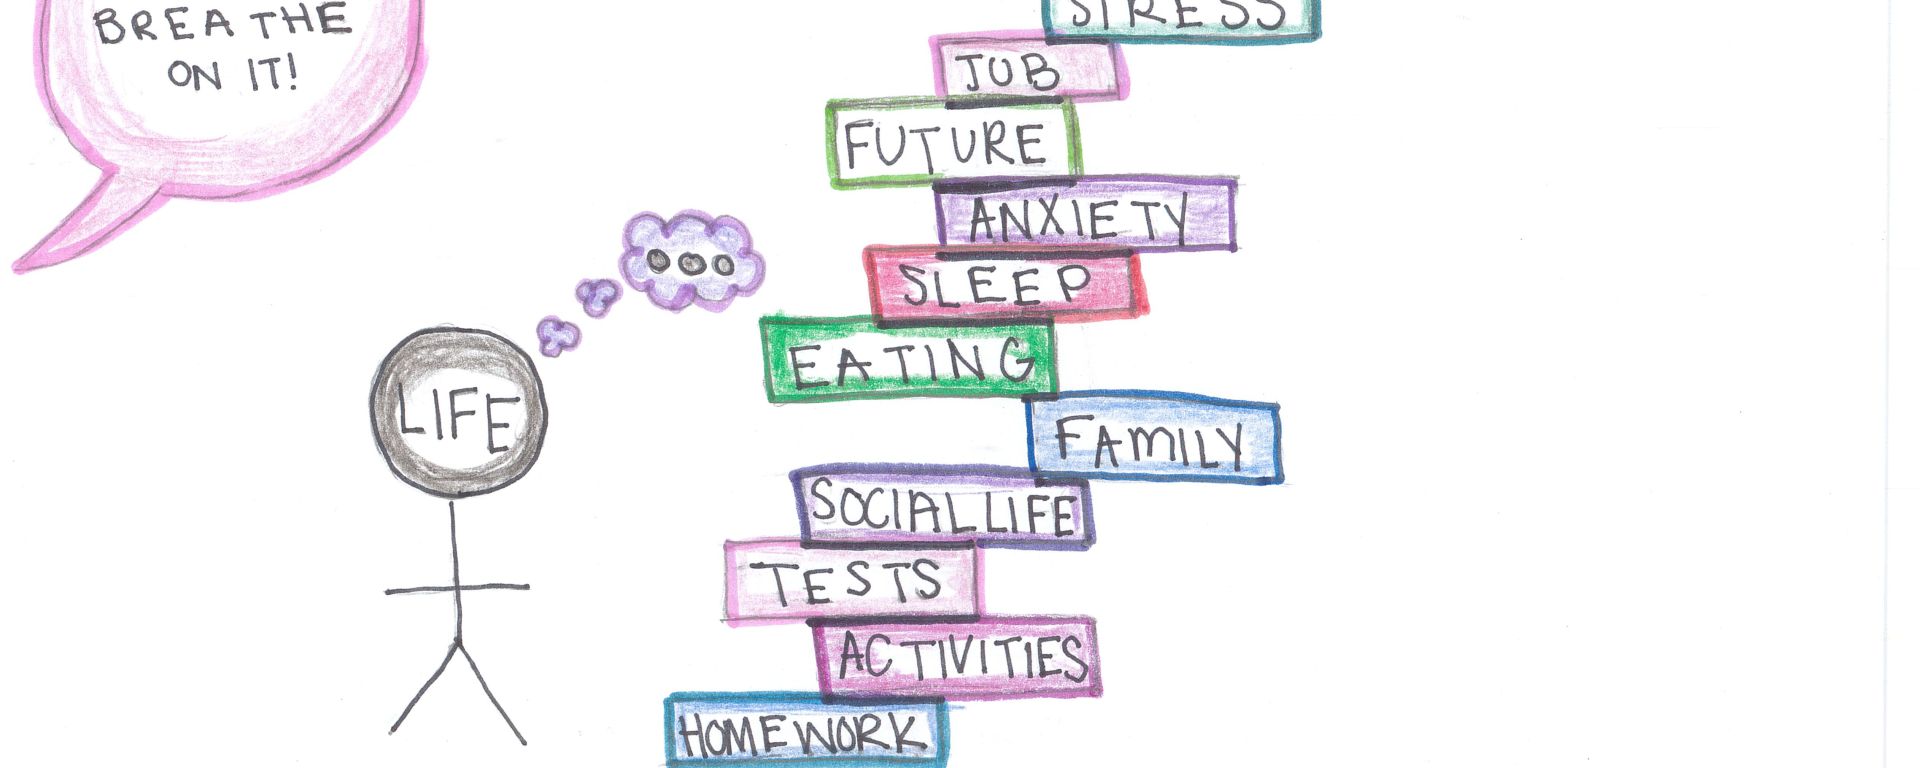 BREATHE
ON IT!
STRESS
JOB
FUTURE
ANXIETY
SLEEP
EATING
LIFE
FAMILY
SOCIAL LIFE
TESTS
ACTIVITIES
HOMEWORK